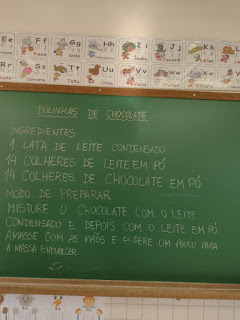 Ee Ff Gg Hh Ii Jj Kk
Rr Ss Tt Uu Vv Ww Xx
BOLINHAS DE CHOCOLATE
INGREDIENTES
1 LATA DE LEITE CONDENSADO
14 COLHERES DE LEITE EM PÓ
14 COLHERES DE CHOCOLATE EM PÓ.
MODO DE PREPARAR
MISTURE O CHOCOLATE COM O LEITE
CONDENSADO E DEPOIS COM O LEITE EM PÓ.
AMASSE COM AS MÃOS E ESPERE UM POUCO PARA
A MASSA ENDURECER.